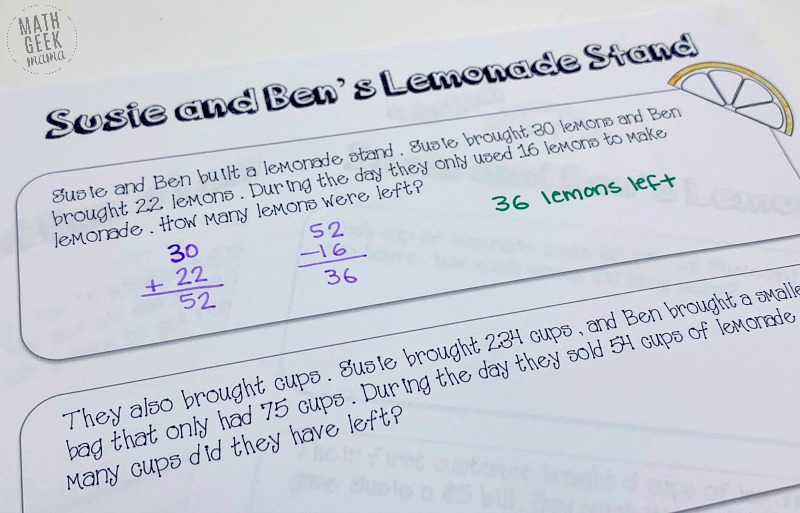 MATH
GEEK
mama
Susie and Ben's Lemonade Stand
Susie and Ben built a lemonade stand. Susie brought 30 lemons and Ben
brought 22 lemons. During the day they only used 16 lemons to make
lemonade. How many lemons were left?
36 lemons left
30
+ 22
52
52
-16
36
They also brought cups. Susie brought 234 cups, and Ben brought a smalle
bag that only had 75 cups. During the day they sold 54 cups of lemonade
many cups did they have left?